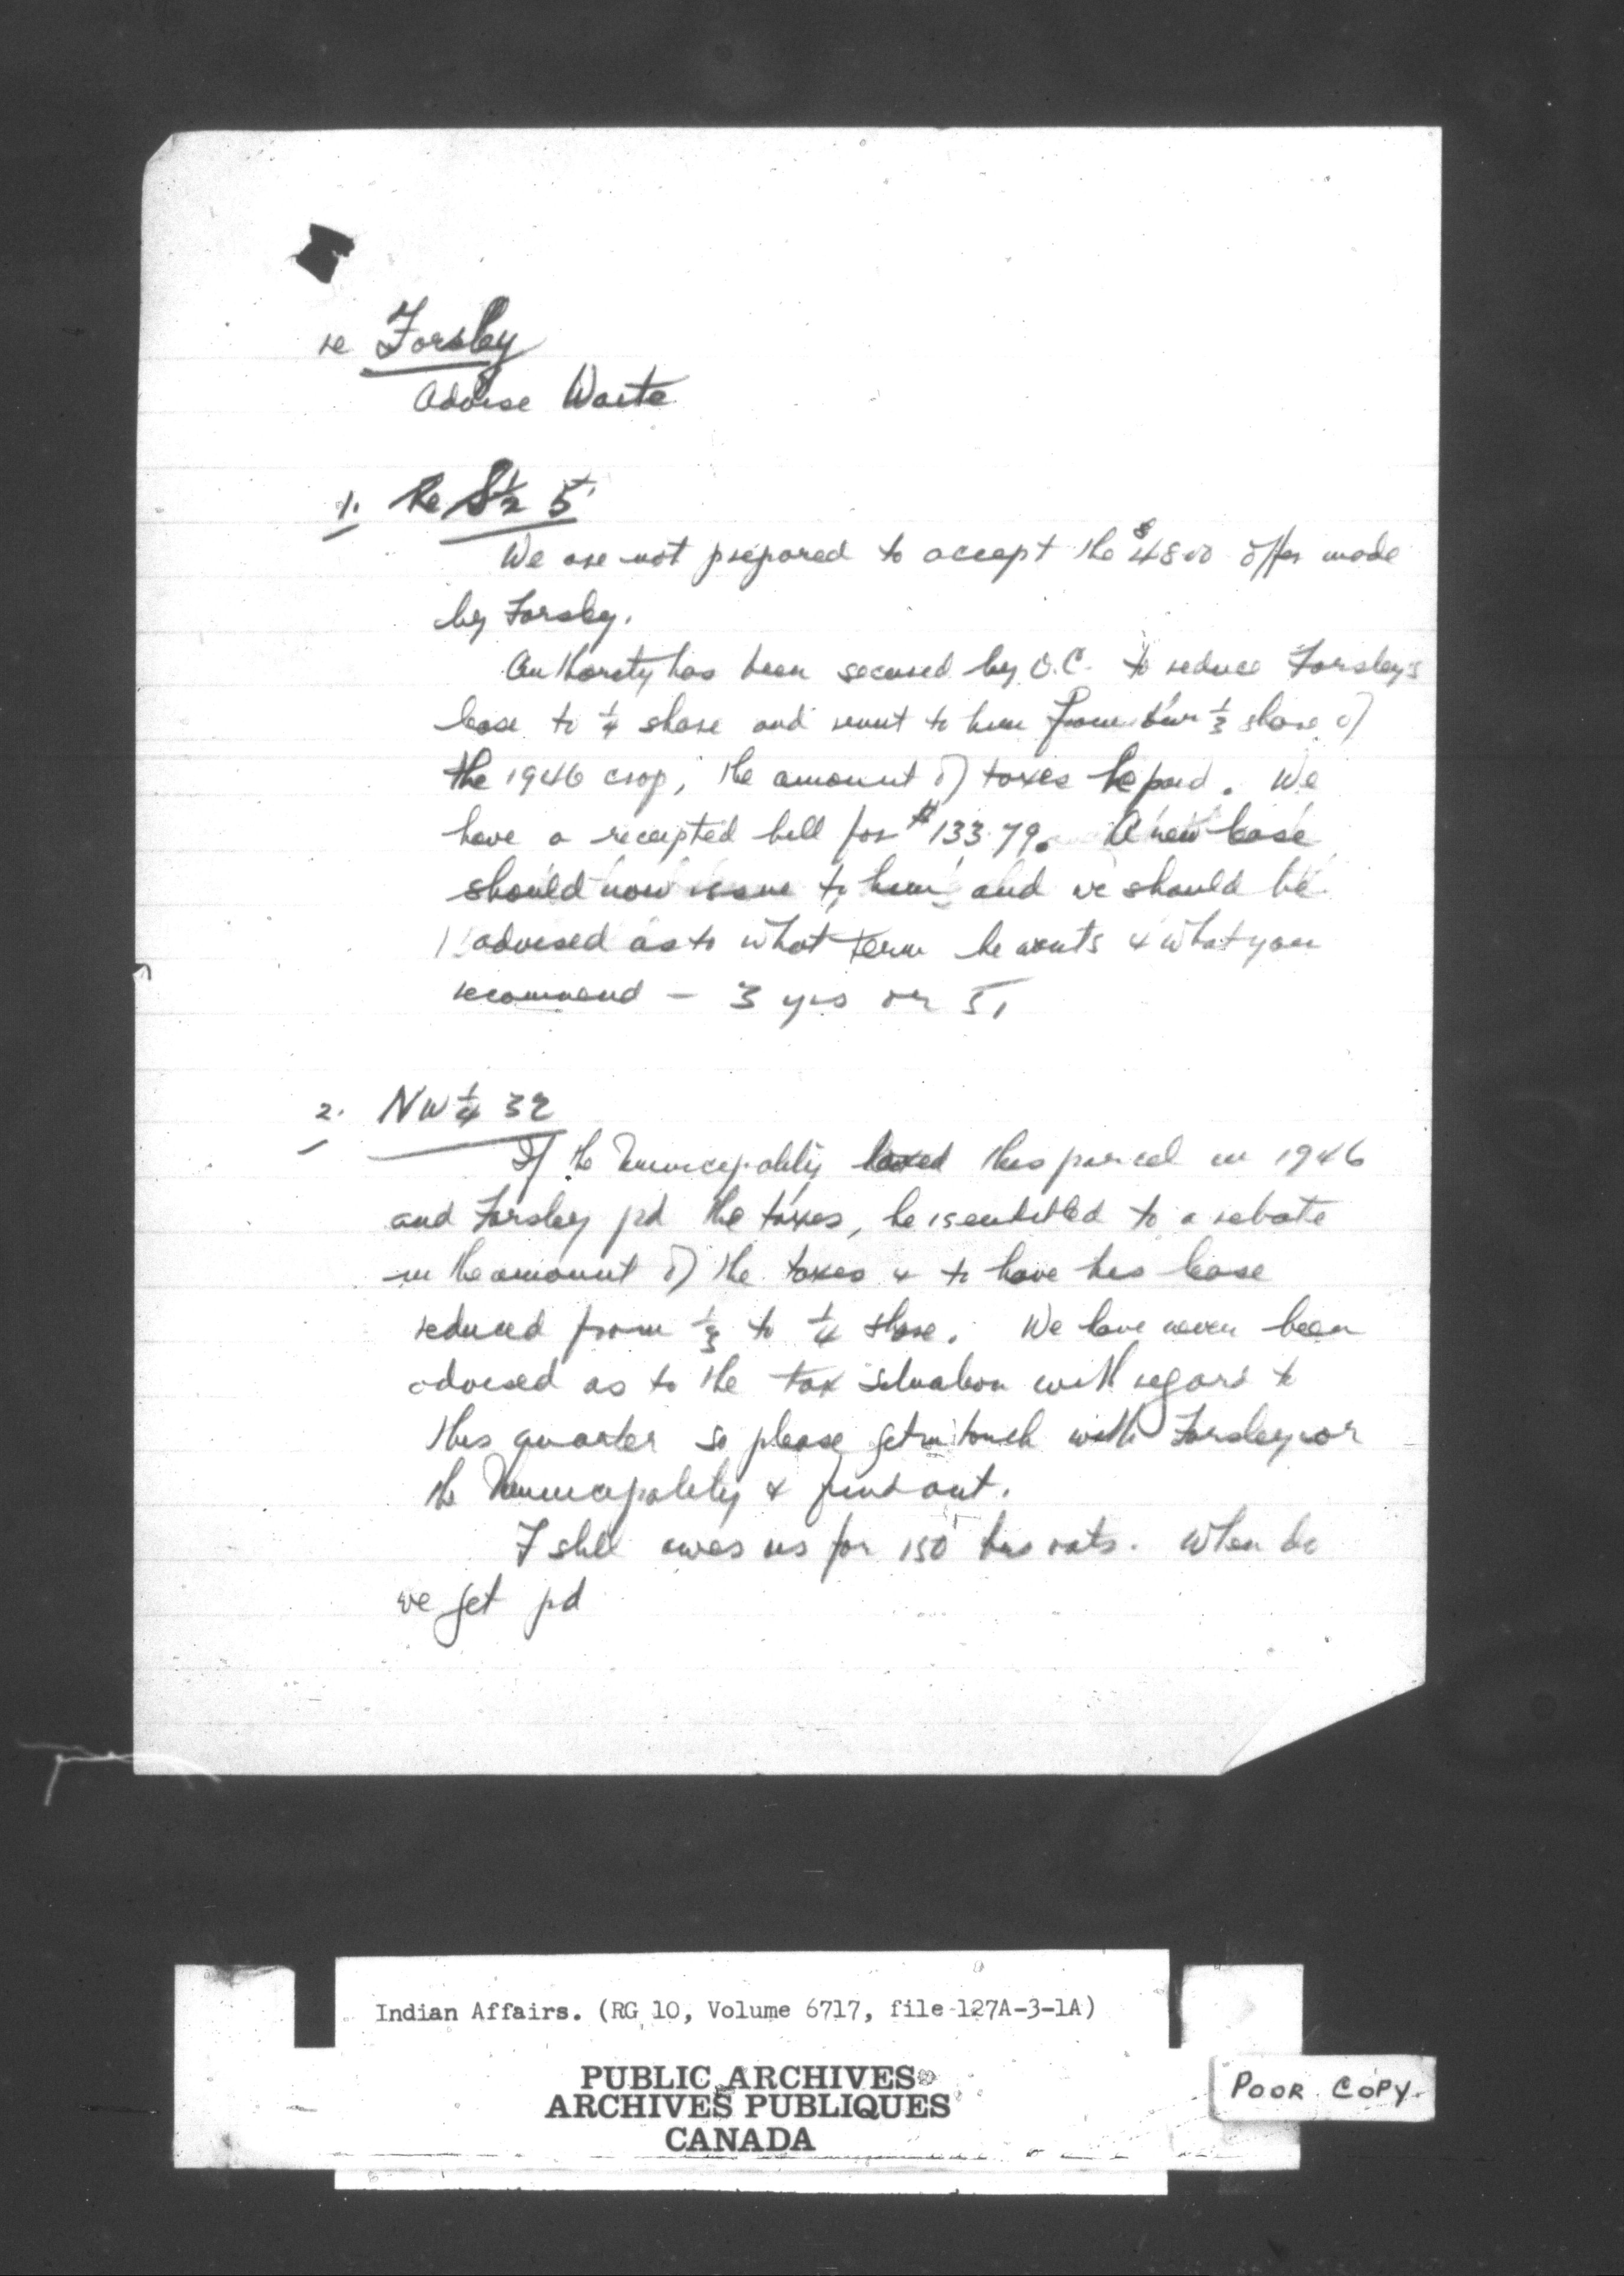 re Forsley
Advise Waite
1. Re S½ 5
We are not prepared to accept the $4800 offer made
by Forsley.
Authority has been secured by O.C. to reduce Forsley's
lease to ¼ share and remit to him from our ⅓ share of
the 1946 crop, the amount of taxes he paid. We
have a receipted bill for $133.79. A new lease
should now issue to him and we should be
advised as to what term he wants & what you
recommend - 3 yrs or 5,
2. NW ¼ 32
If the Municipality taxed this parcel in 1946
and Forsley pd the taxes, he is entitled to a rebate
in the amount of the taxes & to have his lease
reduced from ⅓ to ¼ share. We have never been
advised as to the tax situation with regard to
this quarter so please get in touch with Forsley or
the Municipality & find out.
F still owes us for 150 bus oats. When do
we get pd
Indian Affairs. (RG 10, Volume 6717, file 127A-3-1A)
PUBLIC ARCHIVES
ARCHIVES PUBLIQUES
CANADA
POOR COPY.